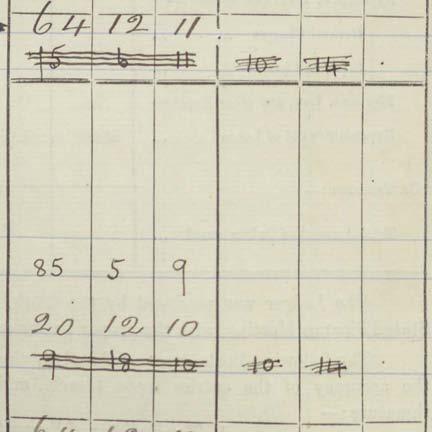 64 12 11
15 6 11 10 14
85 5 9
20 12 10
9 18 10 10 14
64 12 11